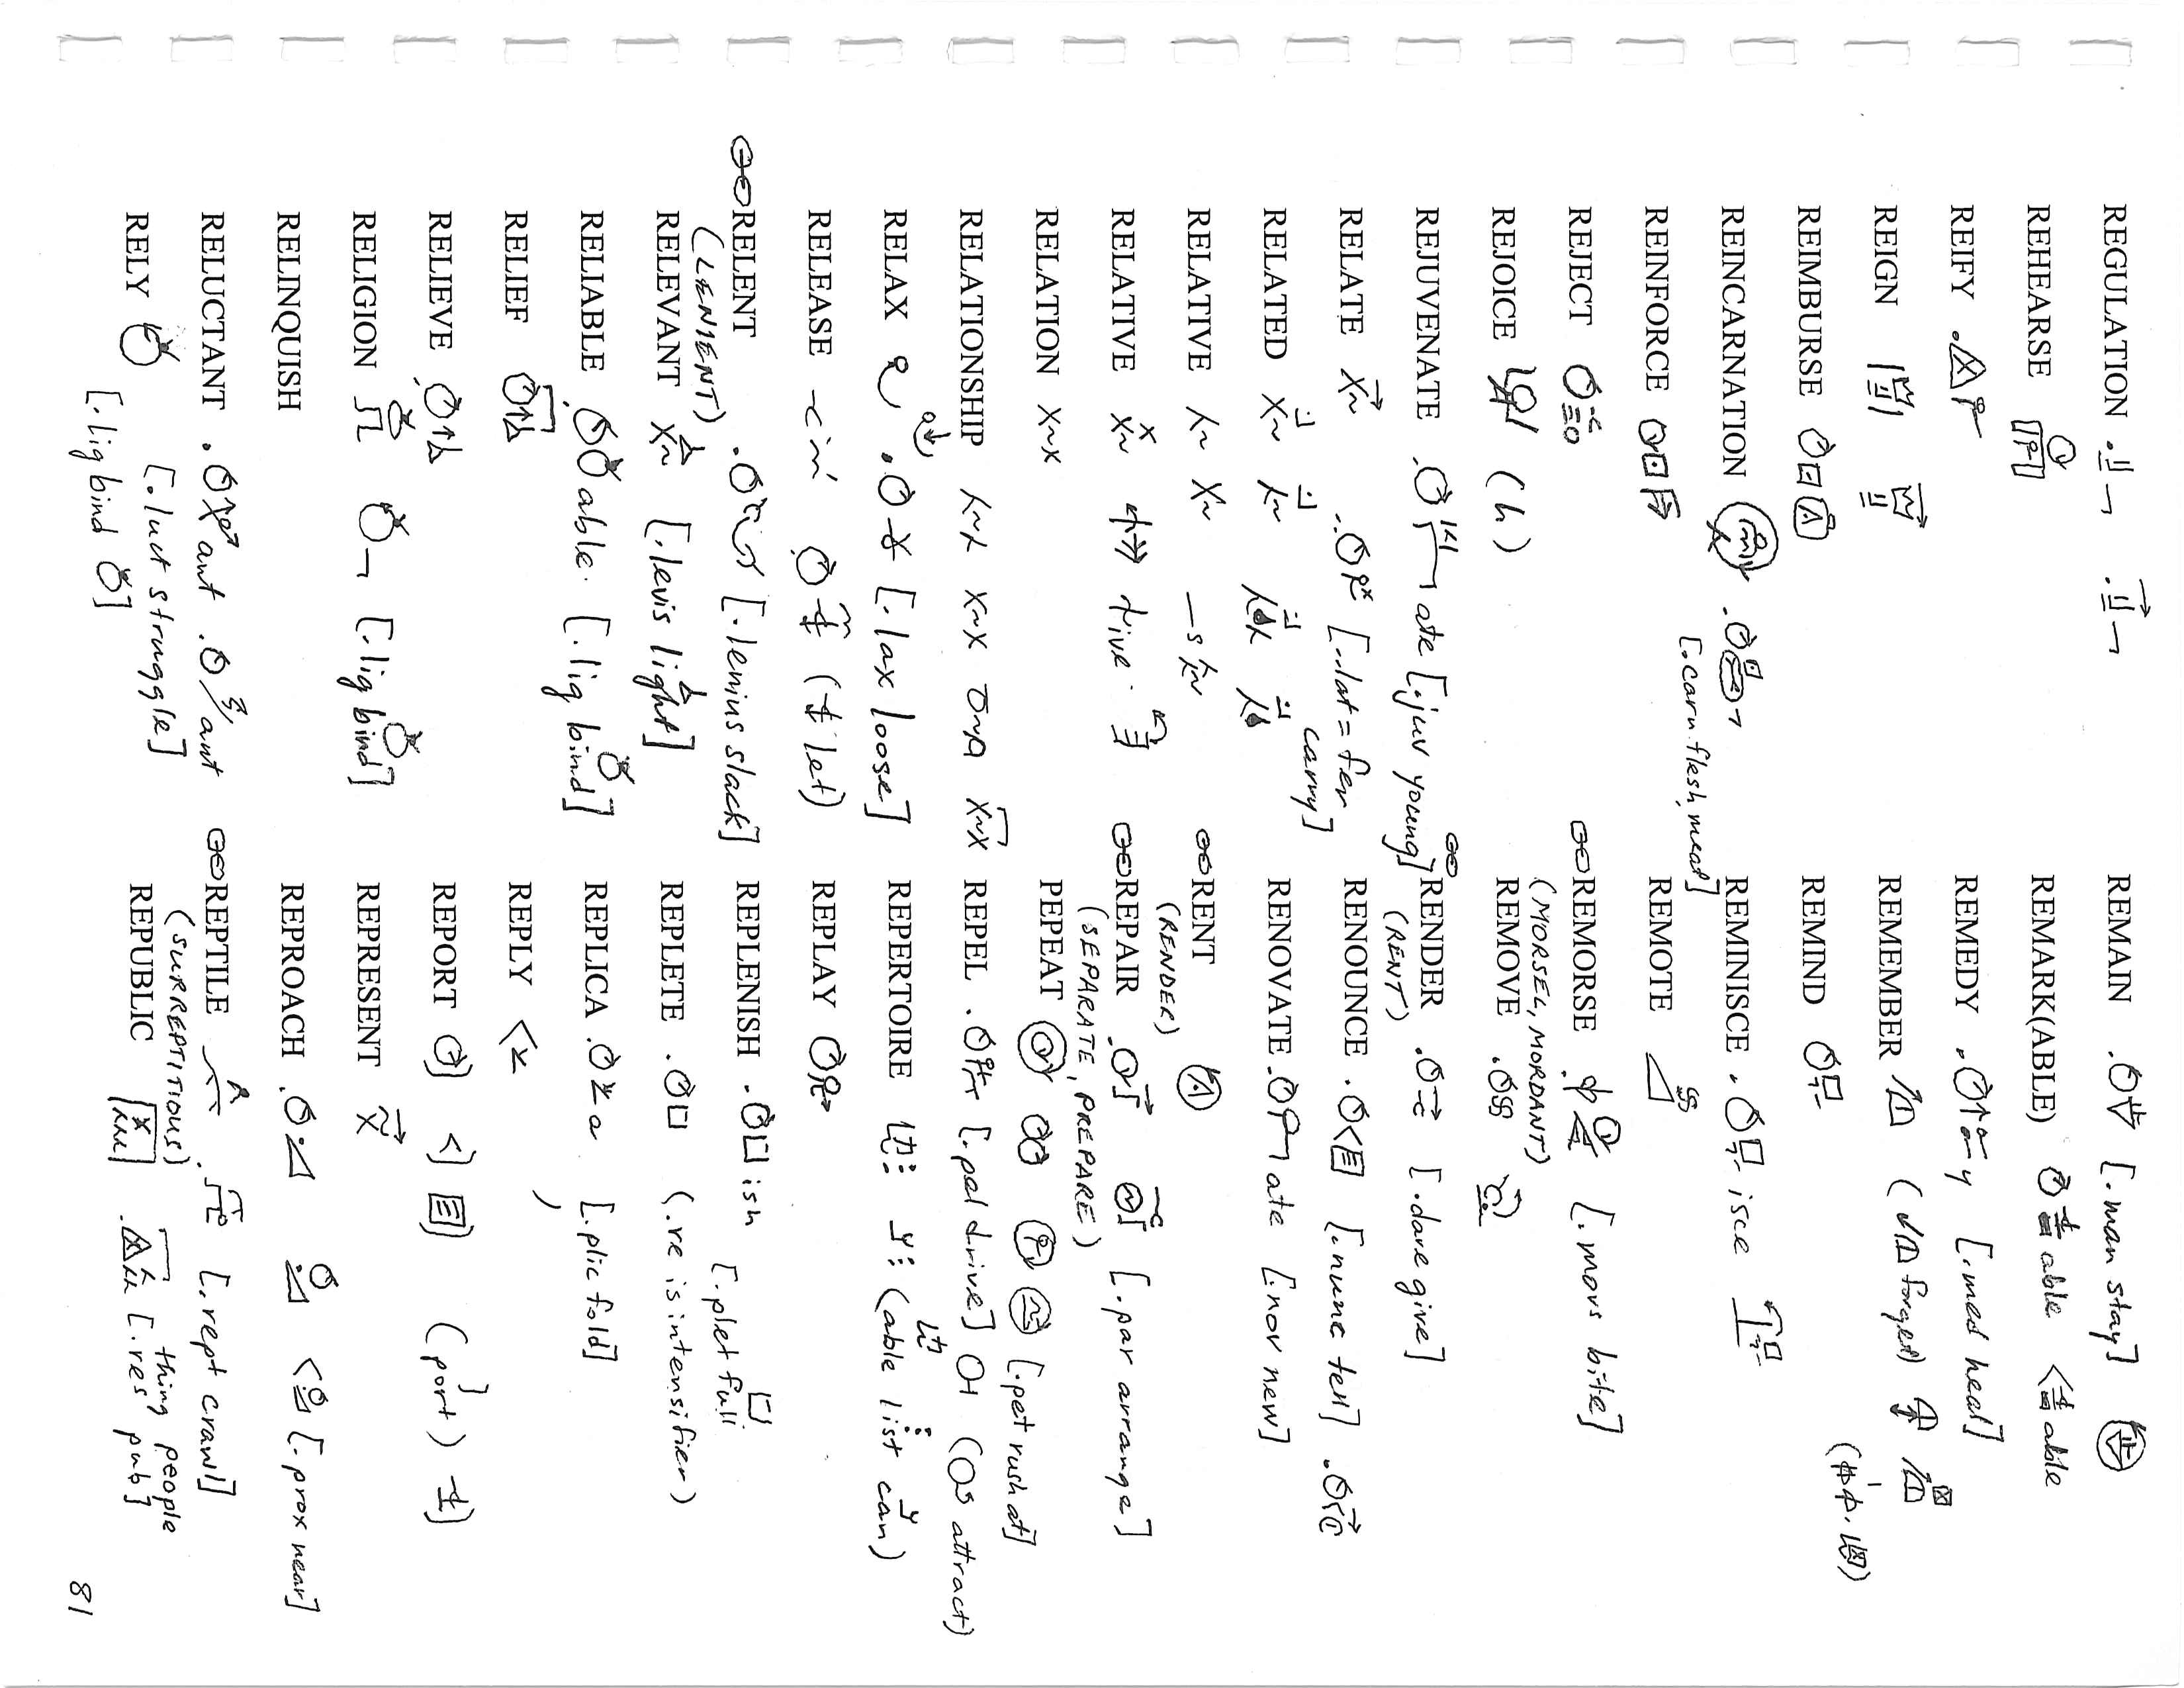 REGULATION
REHEARSE
REIFY
REIGN
REIMBURSE
REINCARNATION [.carn flesh, meat]
REINFORCE
REJECT
REJOICE (h)
REJUVENATE ate [.juv young]
RELATE [..lat = fer carry]
RELATED
RELATIVE —s
RELATIVE tive
RELATION
RELATIONSHIP
RELAX [.lax loose]
RELEASE (let)
RELENT [.lenius slack]
(LENIENT)
RELEVANT [.levis light]
RELIABLE able. [.lig bind]
RELIEF
RELIEVE
RELIGION [.lig bind]
RELINQUISH
RELUCTANT ant ant
[.luct struggle]
RELY
[.lig bind]
REMAIN [.man stay]
REMARK(ABLE) able able
REMEDY y [.med heal]
REMEMBER (forget)
REMIND
REMINISCE isce
REMOTE
REMORSE [.mors bite]
(MORSEL, MORDANT)
REMOVE
RENDER [.dare give]
(RENT)
RENOUNCE [.nunc tell]
RENOVATE ate [.nov new]
RENT
(RENDER)
REPAIR [.par arrange]
(SEPARATE, PREPARE)
PEPEAT [.pet rush at]
REPEL [.pel drive] (attract)
REPERTOIRE (able list can)
REPLAY
REPLENISH ish [.plet full]
REPLETE (.re is intensifier)
REPLICA a [.plic fold]
REPLY
REPORT (port)
REPRESENT
REPROACH [.prox near]
REPTILE [.rept crawl]
(SURREPTITIOUS)
REPUBLIC [.res thing pub people]
81